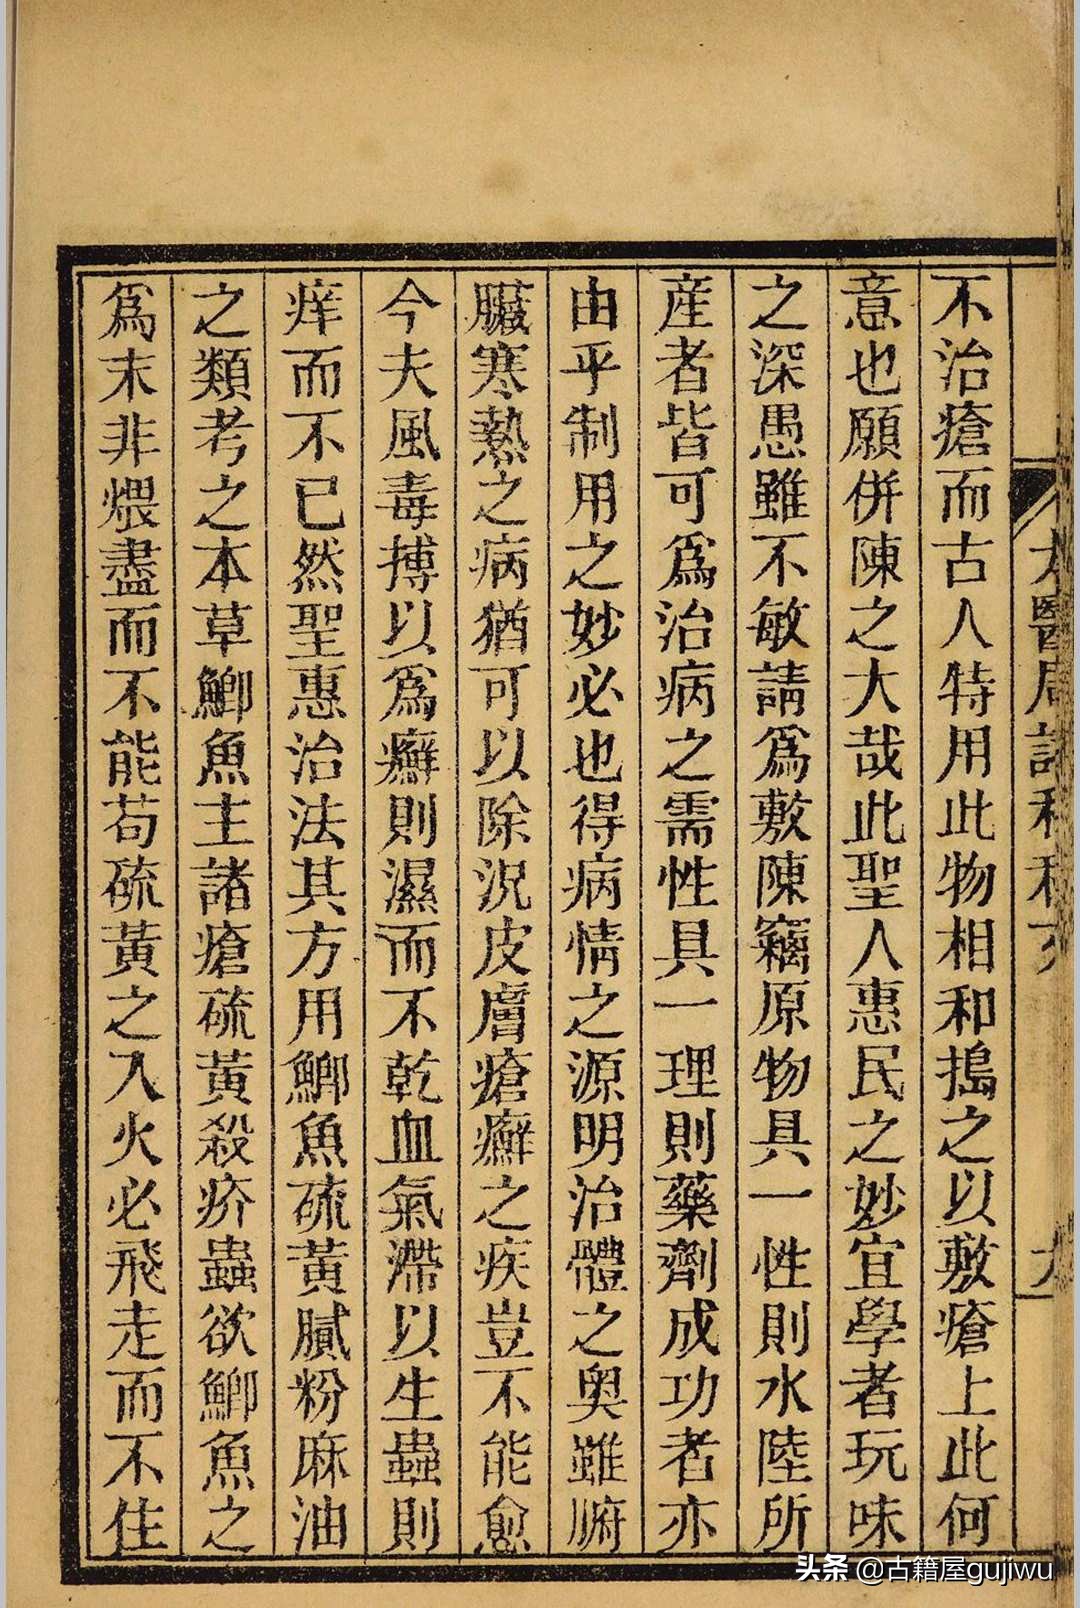 不治瘡而古人特用此物相和搗之以敷瘡上此何
意也願併陳之大哉此聖人惠民之妙宜學者玩味
之深愚雖不敏請爲敷陳竊原物具一性則水陸所
産者皆可爲治病之需性具一理則藥劑成功者亦
由乎制用之妙必也得病情之源明治體之奧雖腑
臟寒熱之病猶可以除況皮膚瘡癬之疾豈不能愈
今夫風毒搏以爲癬則濕而不乾血氣滯以生蟲則
痒而不已然聖惠治法其方用鯽魚硫黃膩粉麻油
之類考之本草鯽魚主諸瘡硫黃殺疥蟲欲鯽魚之
爲末非煨盡而不能苟硫黃之入火必飛走而不住
頭条 @古籍屋gujiwu